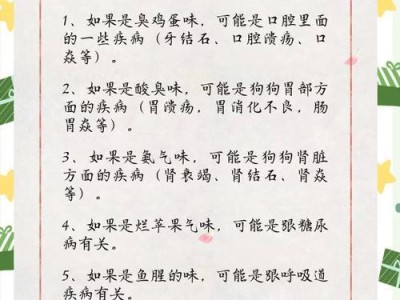 1、如果是臭鸡蛋味，可能是口腔里面
的一些疾病（牙结石、口腔溃疡、口
焱等）。
2、如果是酸臭味，可能是狗狗胃部方
面的疾病（胃溃疡，胃消化不良，肠
胃焱等）。
3、如果是氨气味，可能是狗狗肾脏
方面的疾病（肾衰竭、肾结石、肾焱
等）。
4、如果是烂苹果气味，可能是跟糖尿
病有关。
5、如果是鱼腥的味，可能是跟呼吸道
疾病有关。